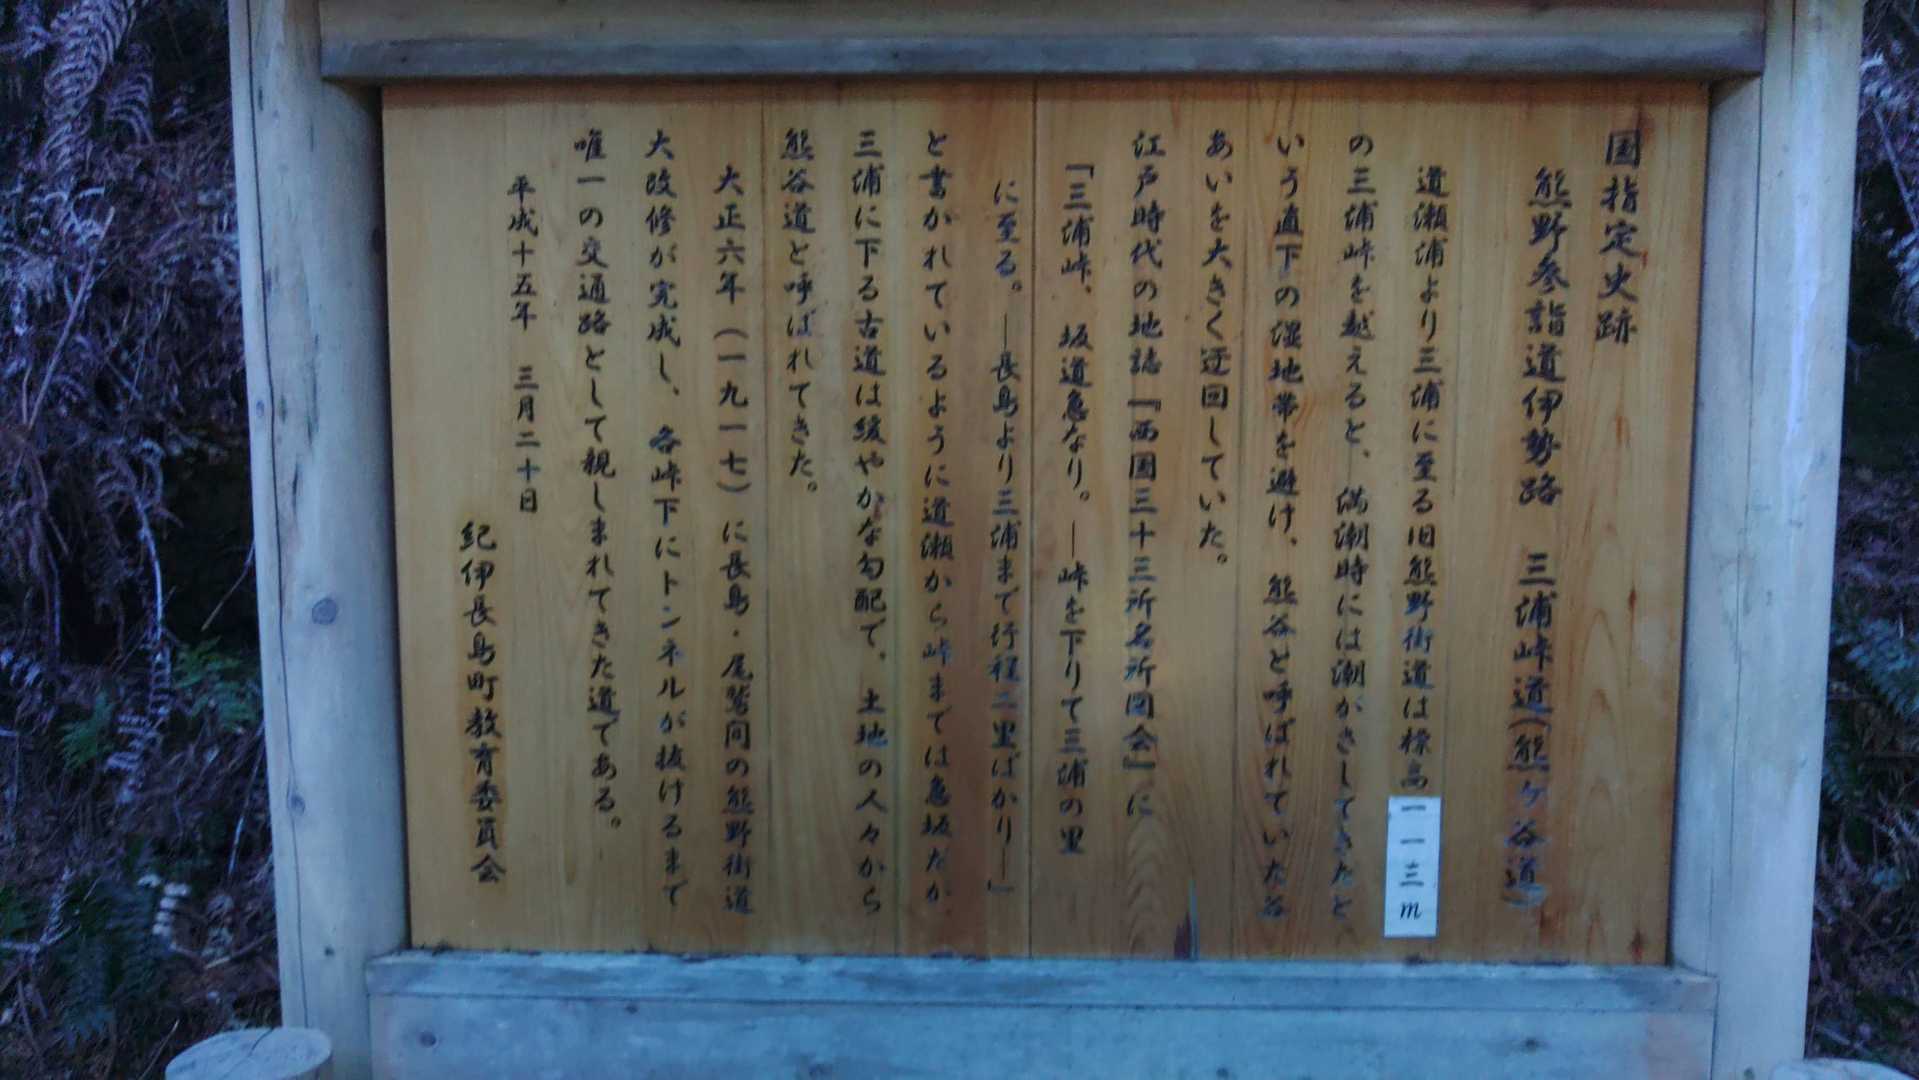 国指定史跡
熊野参詣道伊勢路 三浦峠道(熊ヶ谷道)
道瀬浦より三浦に至る旧熊野街道は標高一一三m
の三浦峠を越えると、満潮時には潮がさしてきたと
いう直下の湿地帯を避け、熊谷と呼ばれていた谷
あいを大きく迂回していた。
江戸時代の地誌『西国三十三所名所図会』に
「三浦峠、坂道急なり。―峠を下りて三浦の里
に至る。―長島より三浦まで行程二里ばかり―」
と書かれているように道瀬から峠までは急坂だが
三浦に下る古道は緩やかな勾配で、土地の人々から
熊谷道と呼ばれてきた。
大正六年(一九一七)に長島・尾鷲間の熊野街道
大改修が完成し、各峠下にトンネルが抜けるまで
唯一の交通路として親しまれてきた道である。
平成十五年 三月二十日
紀伊長島町教育委員会